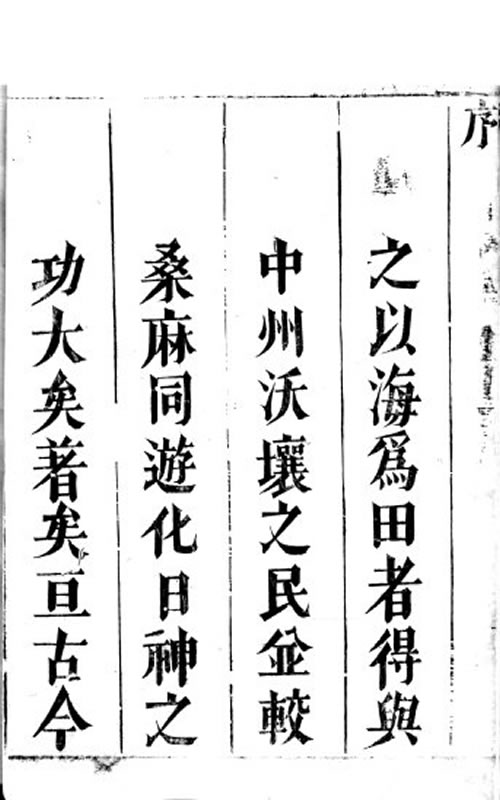 序
之以海為田者得與
中州沃壤之民並較
桑麻同遊化日神之
功大矣著矣亘古今